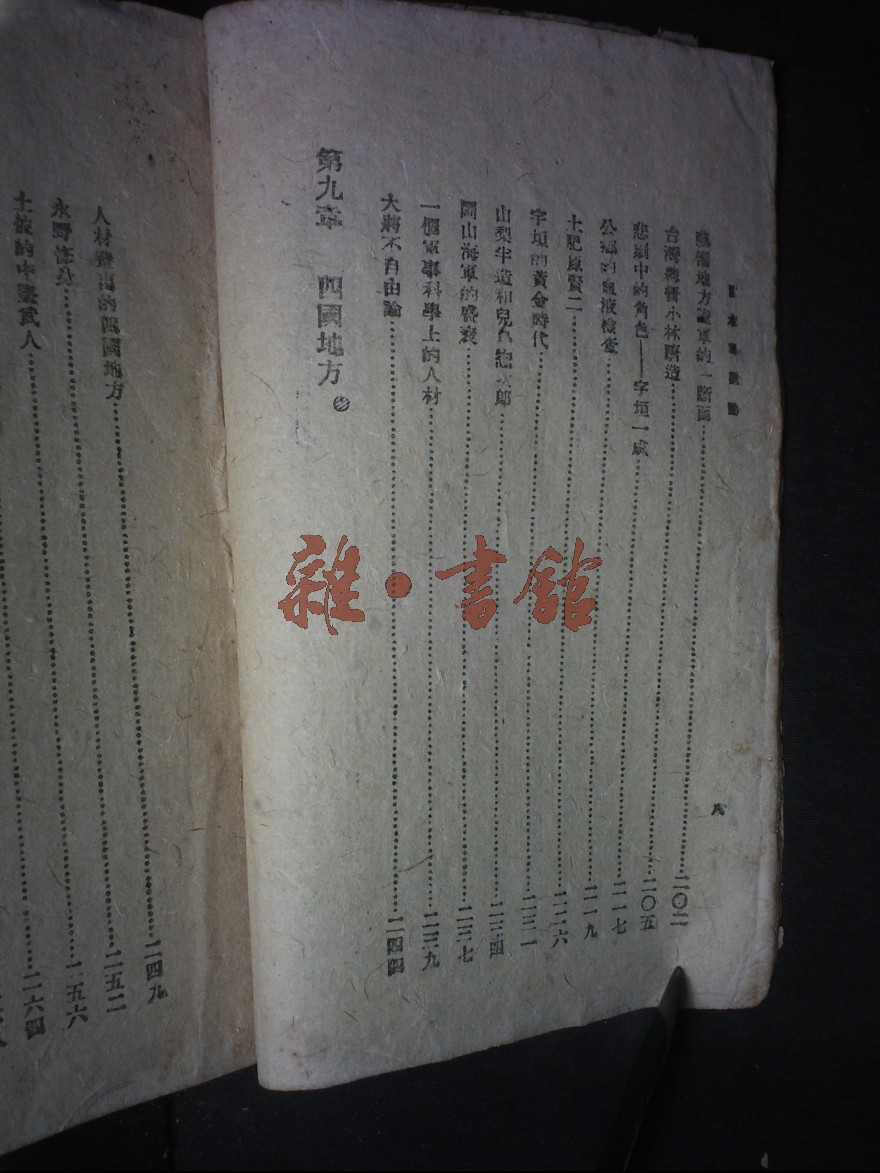 日本軍閥論
八
藝備地方議軍的一斷面 二〇二
台灣總督小林躋造 二〇五
悲劇中的角色——宇垣一成 二一七
公鄉的血液檢查 二一九
土肥原賢二 二二六
宇垣的黃金時代 二三一
山梨半造和兒島惣次郎 二三四
岡山海軍的盛衰 二三七
一個軍事科學上的人材 二三九
大將不自由論 二四四
第九章 四國地方
人材輩出的四國地方 二四九
永野修身 二五二
二五六
土佐的中堅武人 二六四
雜·書館